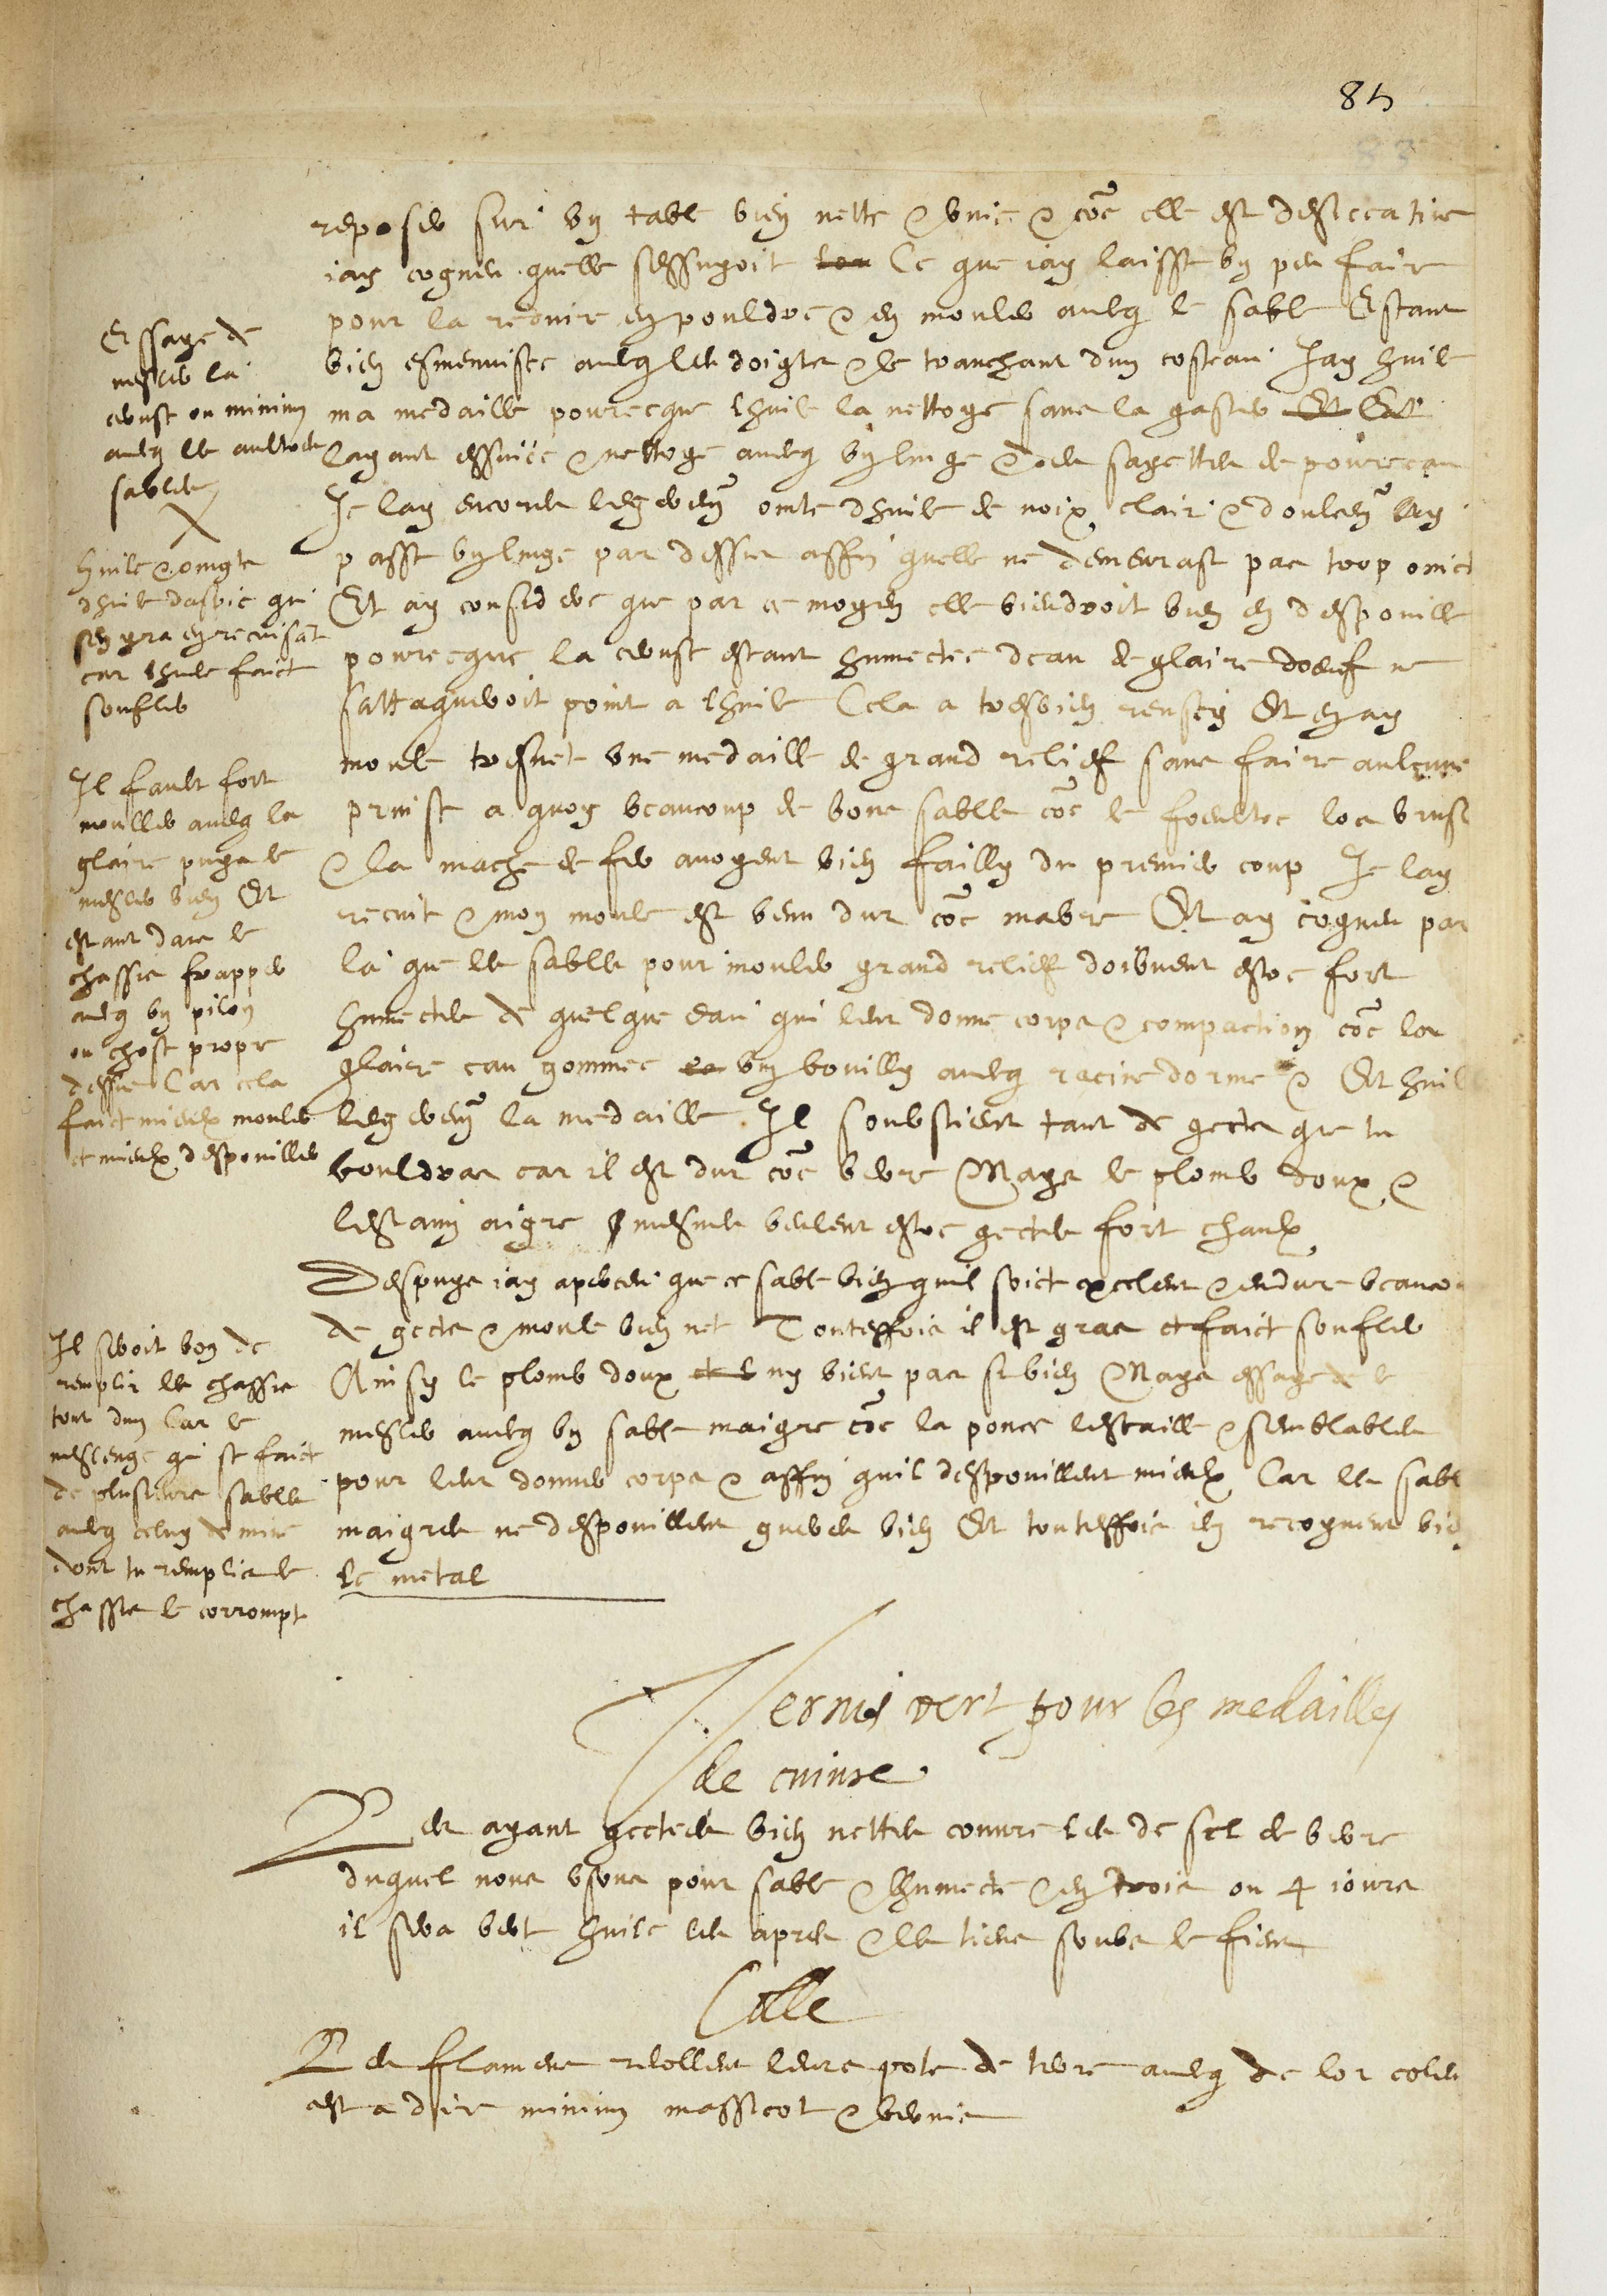 85
reposer sur un table bien nette & unie & co{mm}e elle est desiccative
iay cogneu quelle sessugoit Ce que iay laisse un peu faire
pour la reduire en pouldre & en mouler avecq le sable Estant
bien esmenuisee avecq les doigts & le tranchant dun costeau Jay huile
ma medaille pourceque lhuile la nettoye sans la gaster Et
layant essuiee & nettoye avecq un linge & des sayettes de pourceau
Je lay encores legerem{ent} oincte dhuile de noix clair & doulcem{ent} ay
passe un linge par dessus affin quelle ne demeurast pas trop oincte
Et ay considere que par ce moyen elle viendroit bien en despouille
pourceque la ceruse estant humectee deau de glaire doeuf ne
sattaqueroit point a lhuile Cela a tresbien reuscy Et en ay
moule tresnet une medaille de grand relief sans faire aulcune
prinse a quoy beaucoup de bons sables co{mm}e le foeultre los brusle
& la mache de fer avoyent bien failly du premier coup Je lay
recuit & mon moule est venu dur co{mm}e mabre Et ay cogneu par
la que les sables pour mouler grand relief doibvent estre fort
humectes de quelque eau qui leur donne corps & compaction co{mm}e la
glaire eau gommee vin bouilly avecq racine dorme & Et huile
legerem{ent} la medaille Il soubstient tant de gects que tu
vouldras car il est dur co{mm}e verre Mays le plomb doux &
lestaing aigre mesmes veulent estre gectes fort chaulx
Despuys iay aperceu que ce sable bien quil soict excelent & endure beaucoup
de gects & moule bien net Touteffois il est gras et faict soufler
Ainsy le plomb doux ny vient pas si bien Mays essaye de le
mesler avecq un sable maigre co{mm}e la ponce lescaille & semblables
pour leur donner corps & affin quil despouillent mieulx Car les sables
maigres ne despouillent gueres bien Et touteffois ilz recognent bien
le metal
Essaye de
mesler la
ceruse ou minium
avecq les aultres
sables
Huile & oingts
dhuile daspic qui
sen yra en recuisant
car lhuile faict
soufler
Il fault fort
mouiller avecq la
glaire puys le
mesler bien Et
estant dans le
chassis frapper
avecq un pilon
ou chose propre
dessus Car cela
faict mieulx mouler
et mieulx despouiller
Il seroit bon de
remplir les chassis
tout dun Car le
meslenge qui se faict
de plusieurs sables
avecq celuy de mine
dont tu remplis le
chassis le corrompt
Vernis vert pour les medailles
de cuivre
Les ayant gectees bien nettes couvre les de sel de verre
duquel nous usons pour sable & lhumecte & en trois ou 4 iours
il sera vert huile les apres & les tiens soubs le fiens
Colle
Les flamens recollent leurs pots de terre avecq de lor coleur
cest a dire minium massicot & vernis